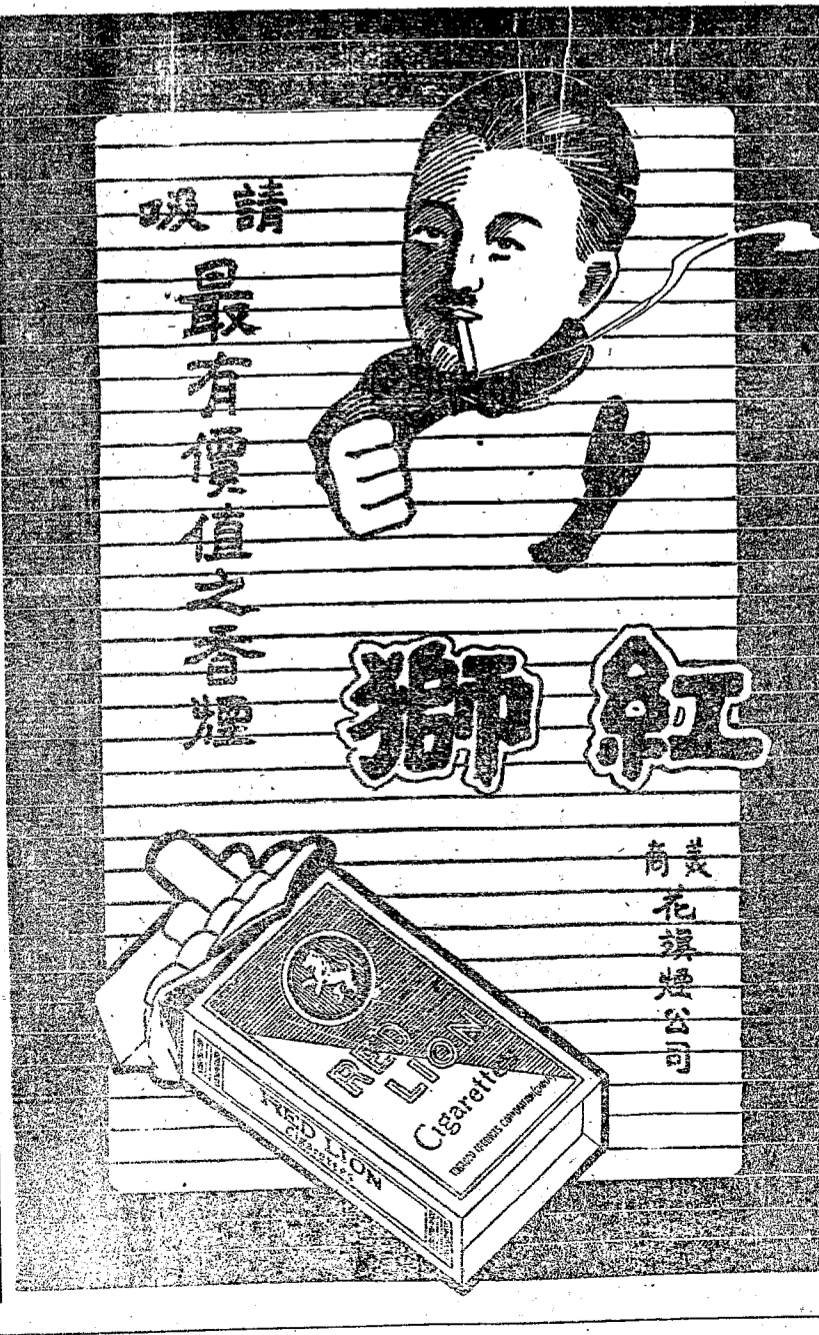 請吸
最有價值之香煙
紅獅
美商
花旗煙公司
RED
LION
Cigarettes
RED LION
Cigarettes